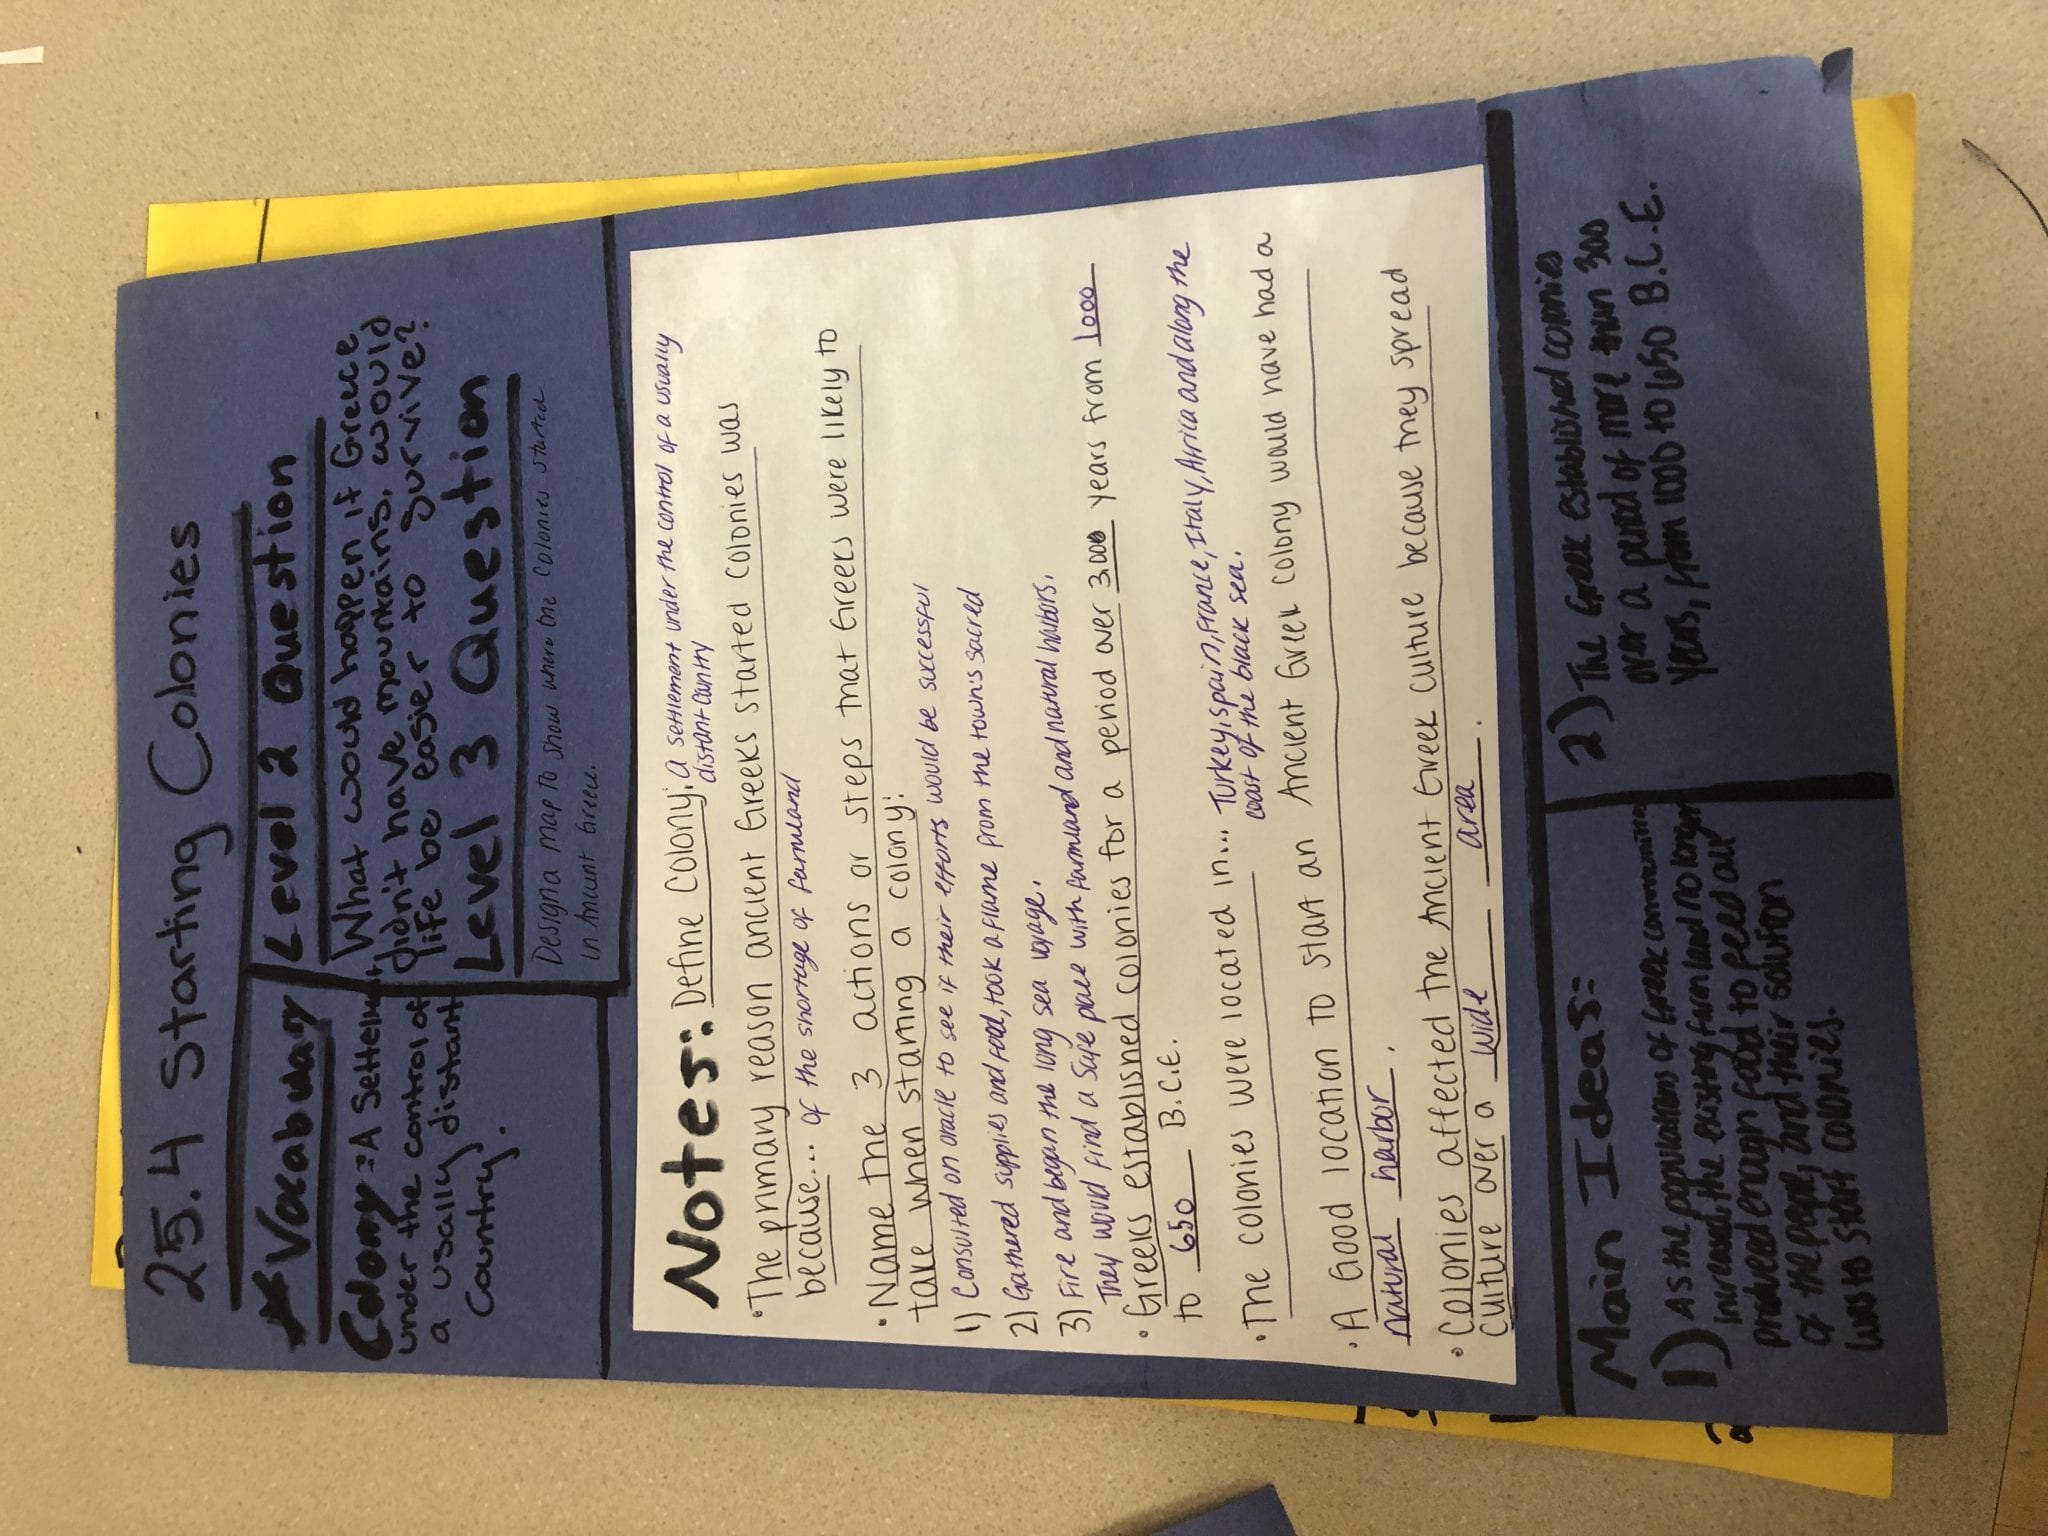 25.4 Starting Colonies
* Vocabulary
Colony = A Settelment
under the control of
a usally distant
Country.
Level 2 Question
What would happen if Greece
didn't have mountains, would
life be easier to survive?
Level 3 Question
Design a map to show where the colonies started
in Ancient Greece.
Notes: Define Colony: a settlement under the control of a usually
distant country
• The primary reason ancient Greeks started colonies was
because... of the shortage of farmland
• Name the 3 actions or steps that Greeks were likely to
take when starting a colony:
1) Consulted an oracle to see if their efforts would be successful
2) Gathered supplies and food, took a flame from the town's sacred
Fire and began the long sea voyage.
3) They would find a safe place with farmland and natural harbors.
• Greeks established colonies for a period over 300 years from 1000
to 650 B.C.E.
• The colonies were located in... Turkey, Spain, France, Italy, Africa and along the
coast of the black sea.
• A Good location to start an Ancient Greek colony would have had a
natural harbor.
• Colonies affected the Ancient Greek culture because they spread
culture over a wide area.
Main Ideas:
1) As the populations of Greek communities
increased, the existing farm land no longer
produced enough food to feed all
of the people, and their solution
was to start colonies.
2) The Greek established colonies
over a period of more than 300
years, from 1000 to 650 B.C.E.